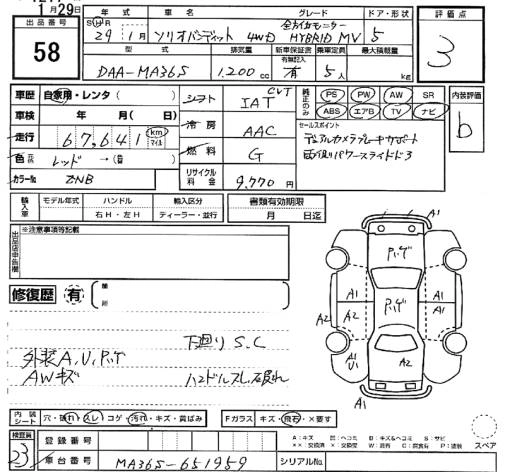 1月29日
出品番号
58
年式 車名 グレード ドア・形状
全方位モニター
29年1月 ソリオバンディット 4WD HYBRID MV 5
型式 排気量 新車保証書 乗車定員 最大積載量
有無記入
DAA-MA36S 1,200cc 有 5人 kg
評価点
3
車歴 自家用・レンタ( )
車検 年 月( 日)
走行 67,641 km マイル
色 レッド →( 色)
カラーNo. ZNB
シフト CVT IAT
冷房 AAC
燃料 G
リサイクル料金 9,770円
純正のみ
PS PW AW SR
ABS エアB TV ナビ
セールスポイント
デュアルカメラブレーキサポート
両側パワースライドドア
内装評価
b
輸入車
モデル年式 ハンドル 輸入区分
右H・左H ディーラー・並行
書類有効期限
月 日迄
出品店申告欄
※注意事項等記載
修復歴 有
箇所
下廻りS.C
外装A,U,P,ヤケ
AWキズ
ハンドルスレ
A1
A1 A1
A2 A1 A1 A2
A1 U1
A2
A1
内装シート 穴・破れ・スレ・コゲ・汚れ・キズ・黄ばみ
Fガラス キズ・飛石・×要す
検査員
23
登録番号
車台番号 MA36S-651959
シリアルNo.
A:キズ U:ヘコミ B:キズ&ヘコミ S:サビ
××:交換済 ×:交換要 W:波有 C:腐食有 P:塗装
スペア